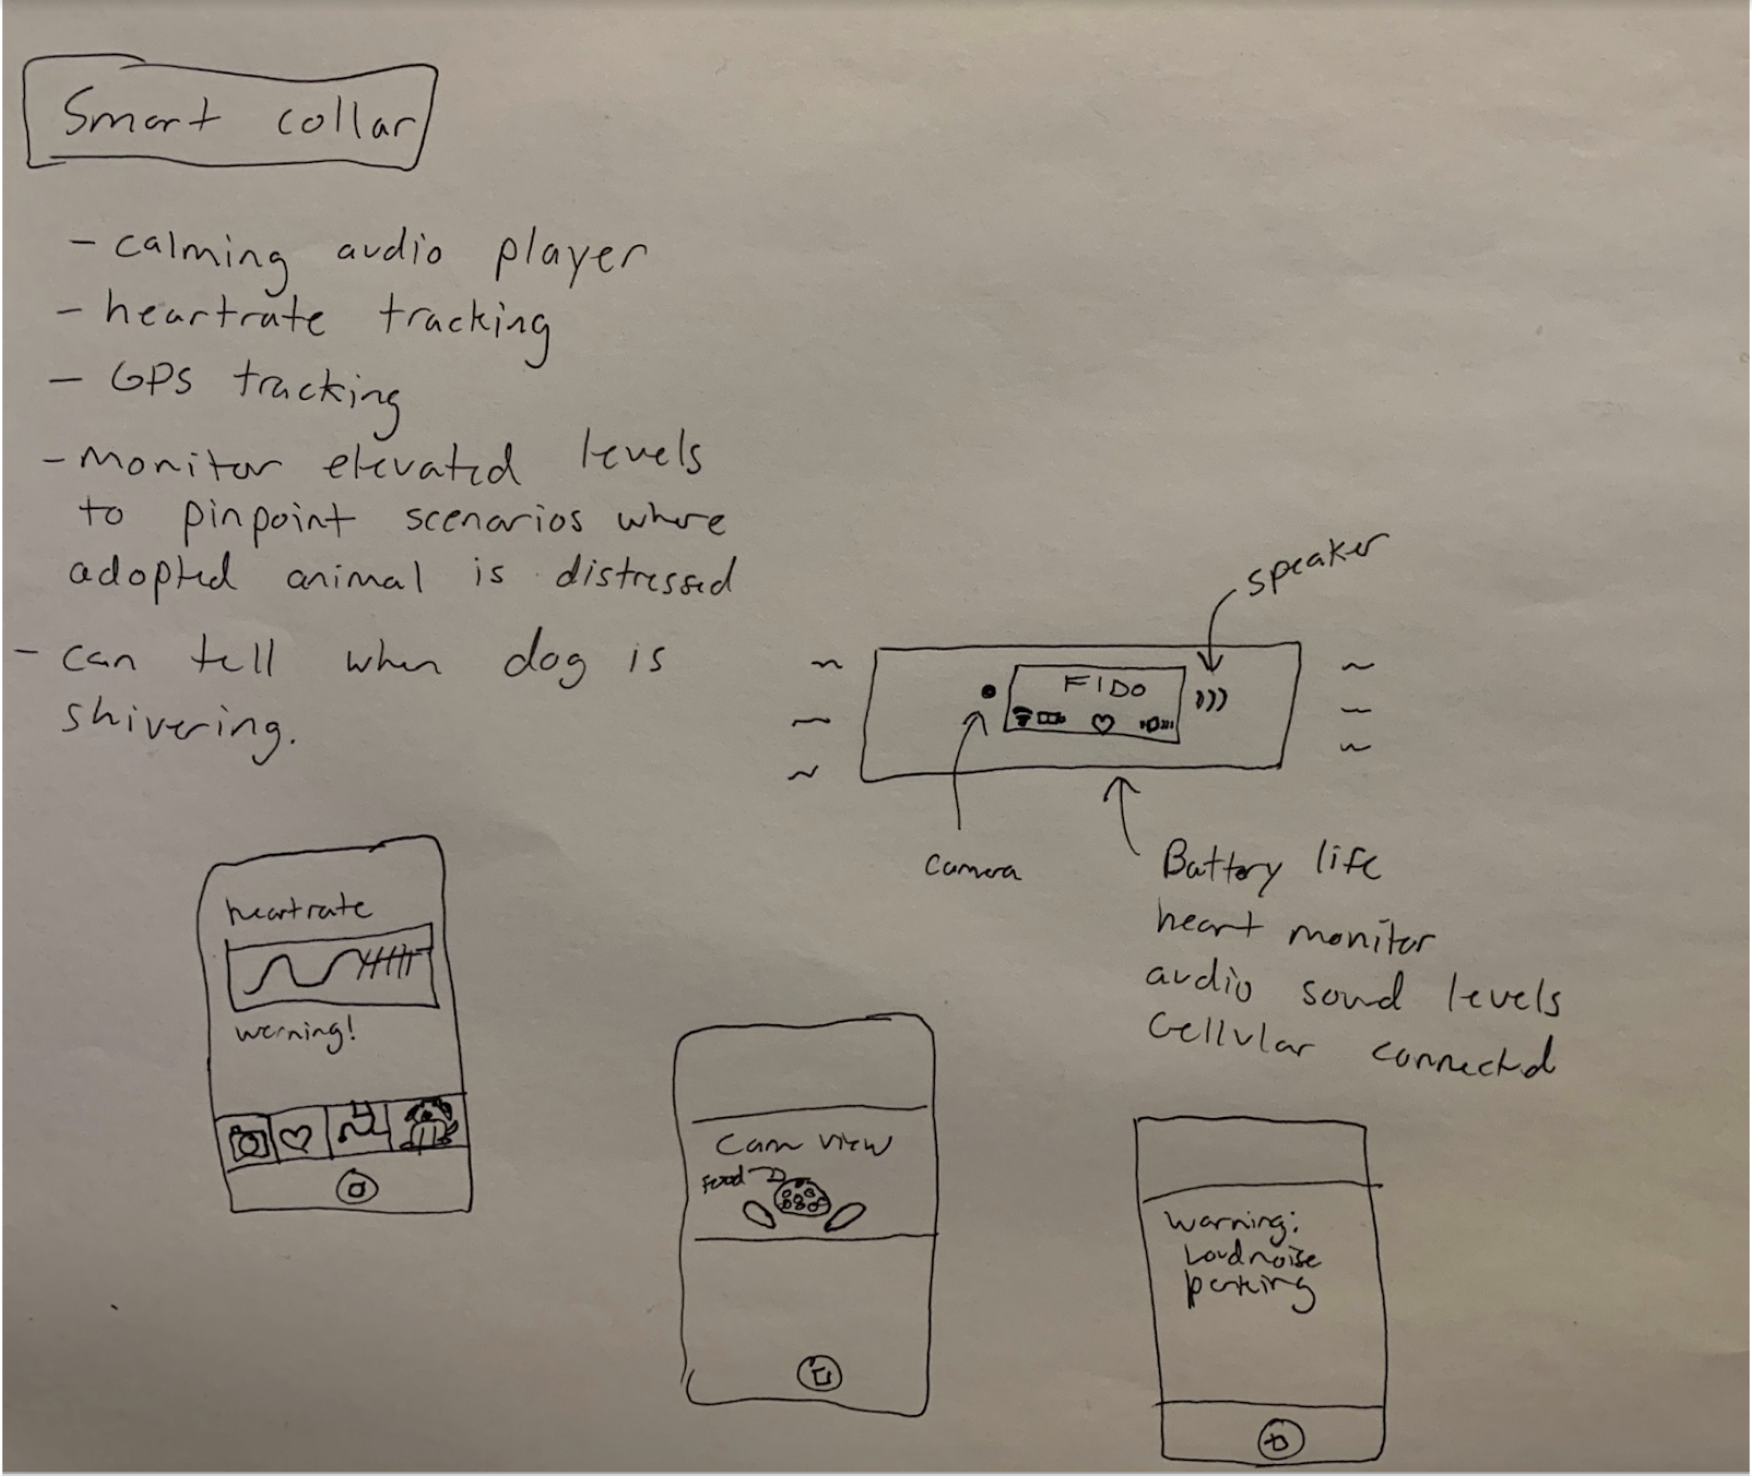 Smart collar
- calming audio player
- heartrate tracking
- GPS tracking
- monitor elevated levels
to pinpoint scenarios where
adopted animal is distressed
- can tell when dog is
shivering.
speaker
FIDO
camera
Battery life
heart monitor
audio sound levels
Cellular connected
heartrate
warning!
Cam view
Food
Warning:
Loud noise